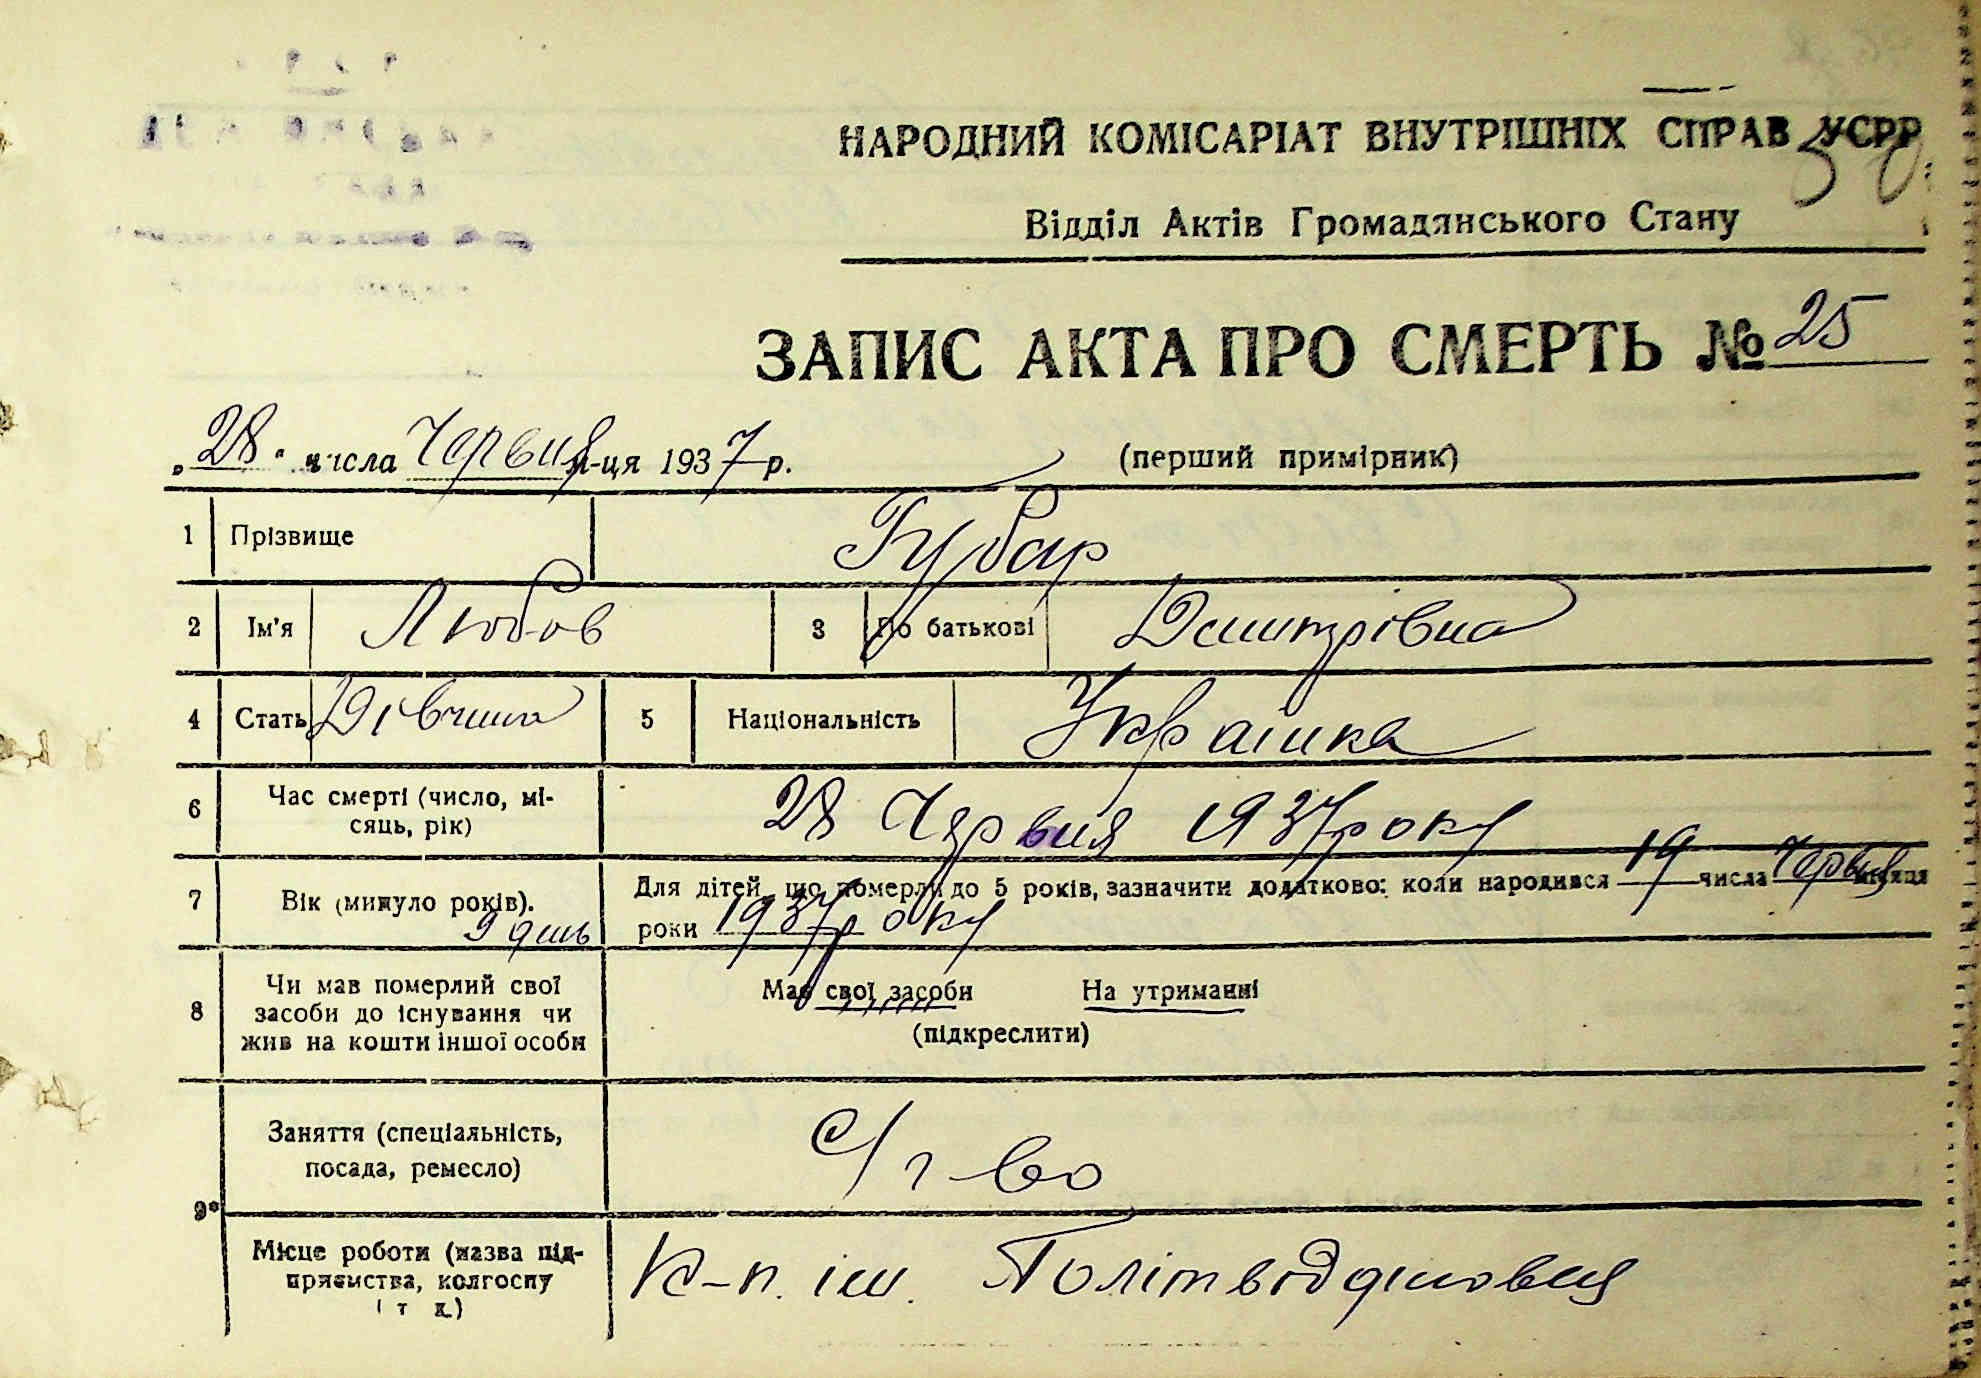 30
НАРОДНИЙ КОМІСАРІАТ ВНУТРІШНІХ СПРАВ УСРР
Відділ Актів Громадянського Стану
ЗАПИС АКТА ПРО СМЕРТЬ № 25
„28“ числа Червня м-ця 1937 р. (перший примірник)
1 Прізвище Губар
2 Ім'я Любов 3 По батькові Дмитрівна
4 Стать Дівчина 5 Національність Українка
6 Час смерті (число, мі-
сяць, рік) 28 Червня 1937 року
7 Вік (минуло років). 9 день Для дітей, що померли до 5 років, зазначити додатково: коли народився 19 числа Червня місяця
роки 1937 року
8 Чи мав померлий свої
засоби до існування чи
жив на кошти іншої особи
Мав свої засоби На утриманні
(підкреслити)
9* Заняття (спеціальність,
посада, ремесло) с/г-во
Місце роботи (назва під-
приємства, колгоспу
і т д.) К-п. ім. Політвідділовця